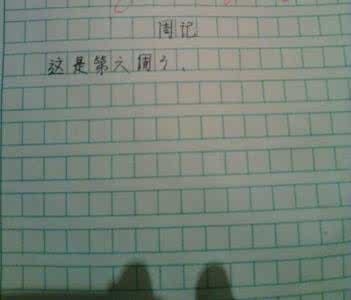 周记
这是第六周了.